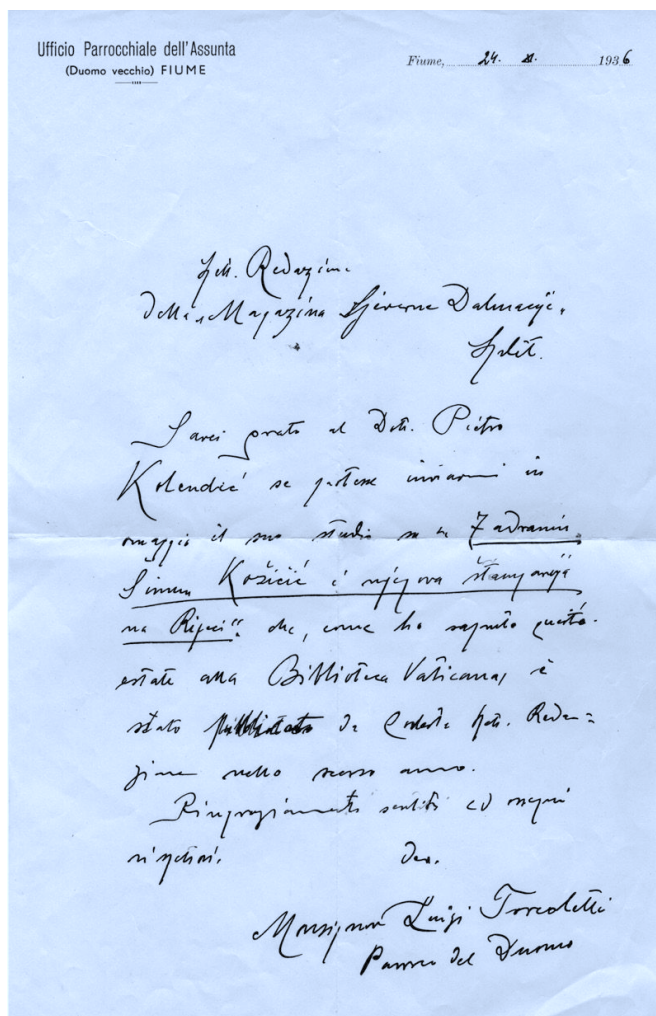 Ufficio Parrocchiale dell'Assunta
(Duomo vecchio) FIUME
Fiume, 24. XI. 1936
Spett. Redazione
della „Magazina Sjeverne Dalmacije„
Split.
Sarei grato al Dott. Pietro
Kolendić se potesse inviarmi in
omaggio il suo studio su „Zadranin
Šimun Kožičić i njegova štamparija
na Rijeci“ che, come ho saputo questa
estate alla Biblioteca Vaticana, è
stato pubblicato da codesta Spett. Reda=
zione nello scorso anno.
Ringraziamenti sentiti ed ossequi
rispettosi. Dev.
Monsignor Luigi Torcoletti
Parroco del Duomo